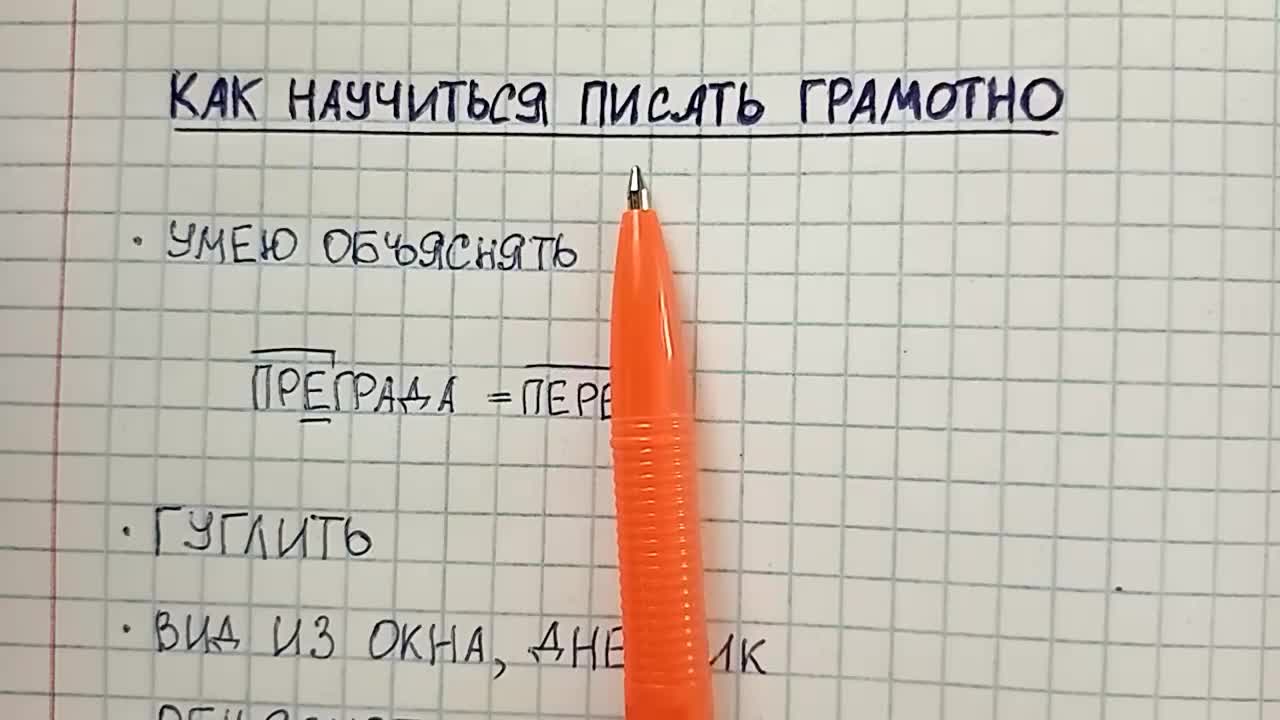 КАК НАУЧИТЬСЯ ПИСАТЬ ГРАМОТНО
· УМЕЮ ОБЪЯСНЯТЬ
ПРЕГРАДА = ПЕРЕ
· ГУГЛИТЬ
· ВИД ИЗ ОКНА,